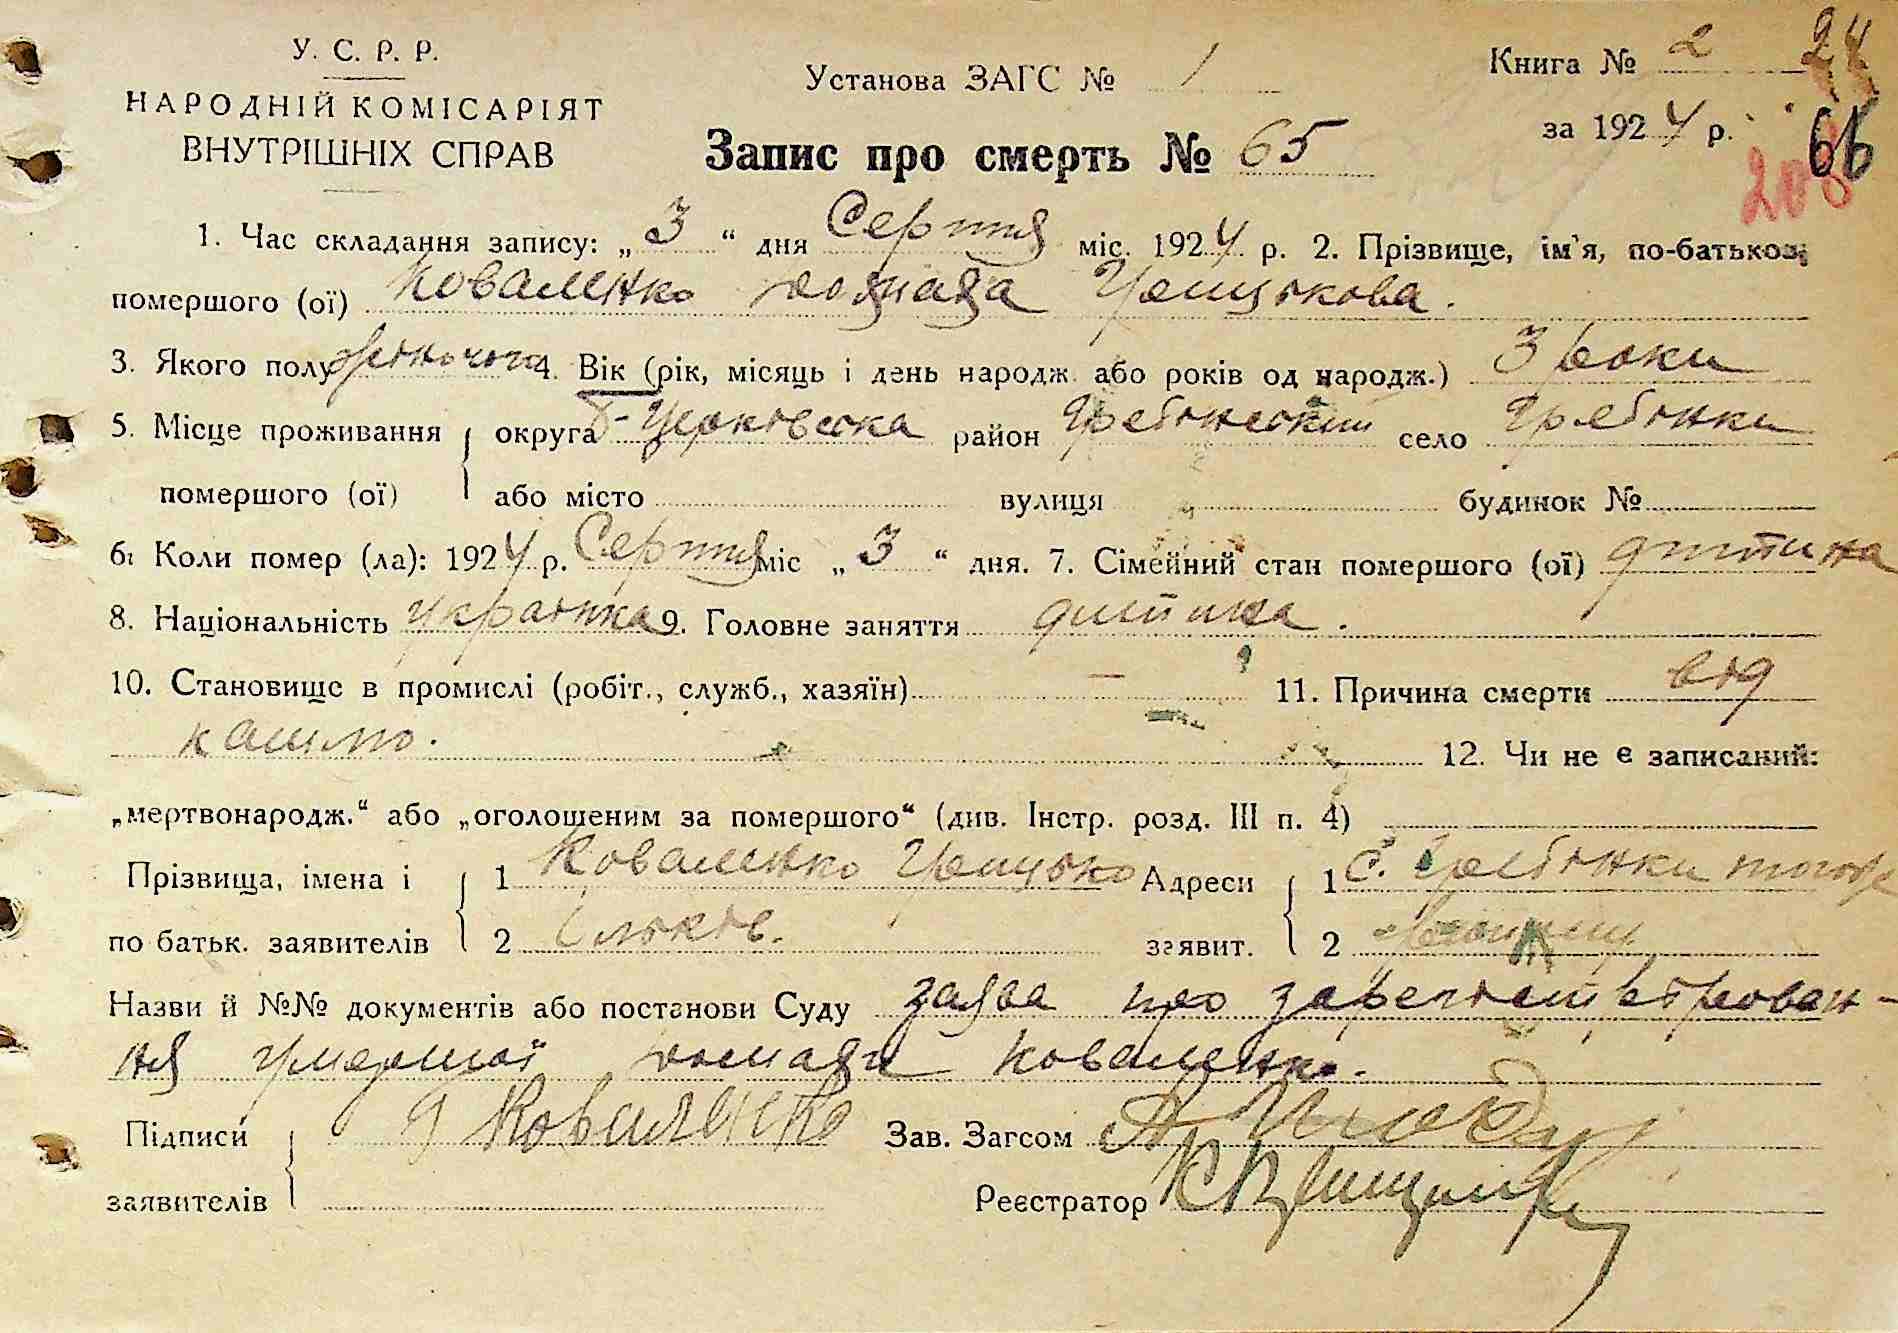 У. С. Р. Р.
НАРОДНІЙ КОМІСАРІЯТ
ВНУТРІШНІХ СПРАВ
Установа ЗАГС № 1
Книга № 2 24
за 1924 р. 66
208
Запис про смерть № 65
1. Час складання запису: „3“ дня Серпня міс. 1924 р. 2. Прізвище, ім'я, по-батькові
помершого (ої) Коваленко Домаха Грицькова.
3. Якого полу жіночого 4. Вік (рік, місяць і день народж. або років од народж.) 3 роки
5. Місце проживання округа Б-Церківська район Гребінський село Гребінки
помершого (ої) або місто вулиця будинок №
6. Коли помер (ла): 1924 р. Серпня міс „3“ дня. 7. Сімейний стан помершого (ої) дитина
8. Національність українка 9. Головне заняття дитина.
10. Становище в промислі (робіт., служб., хазяїн) — 11. Причина смерти від
кашлю.
12. Чи не є записаний:
„мертвонародж.“ або „оголошеним за помершого“ (див. Інстр. розд. III п. 4)
Прізвища, імена і 1 Коваленко Грицько Адреси 1 с. Гребінки того ж
по батьк. заявителів 2 заявит. 2
Назви й №№ документів або постанови Суду заява про зарегістрірован-
ня умершої Домахи Коваленко.
Підписи Коваленко Зав. Загсом
заявителів Реєстратор